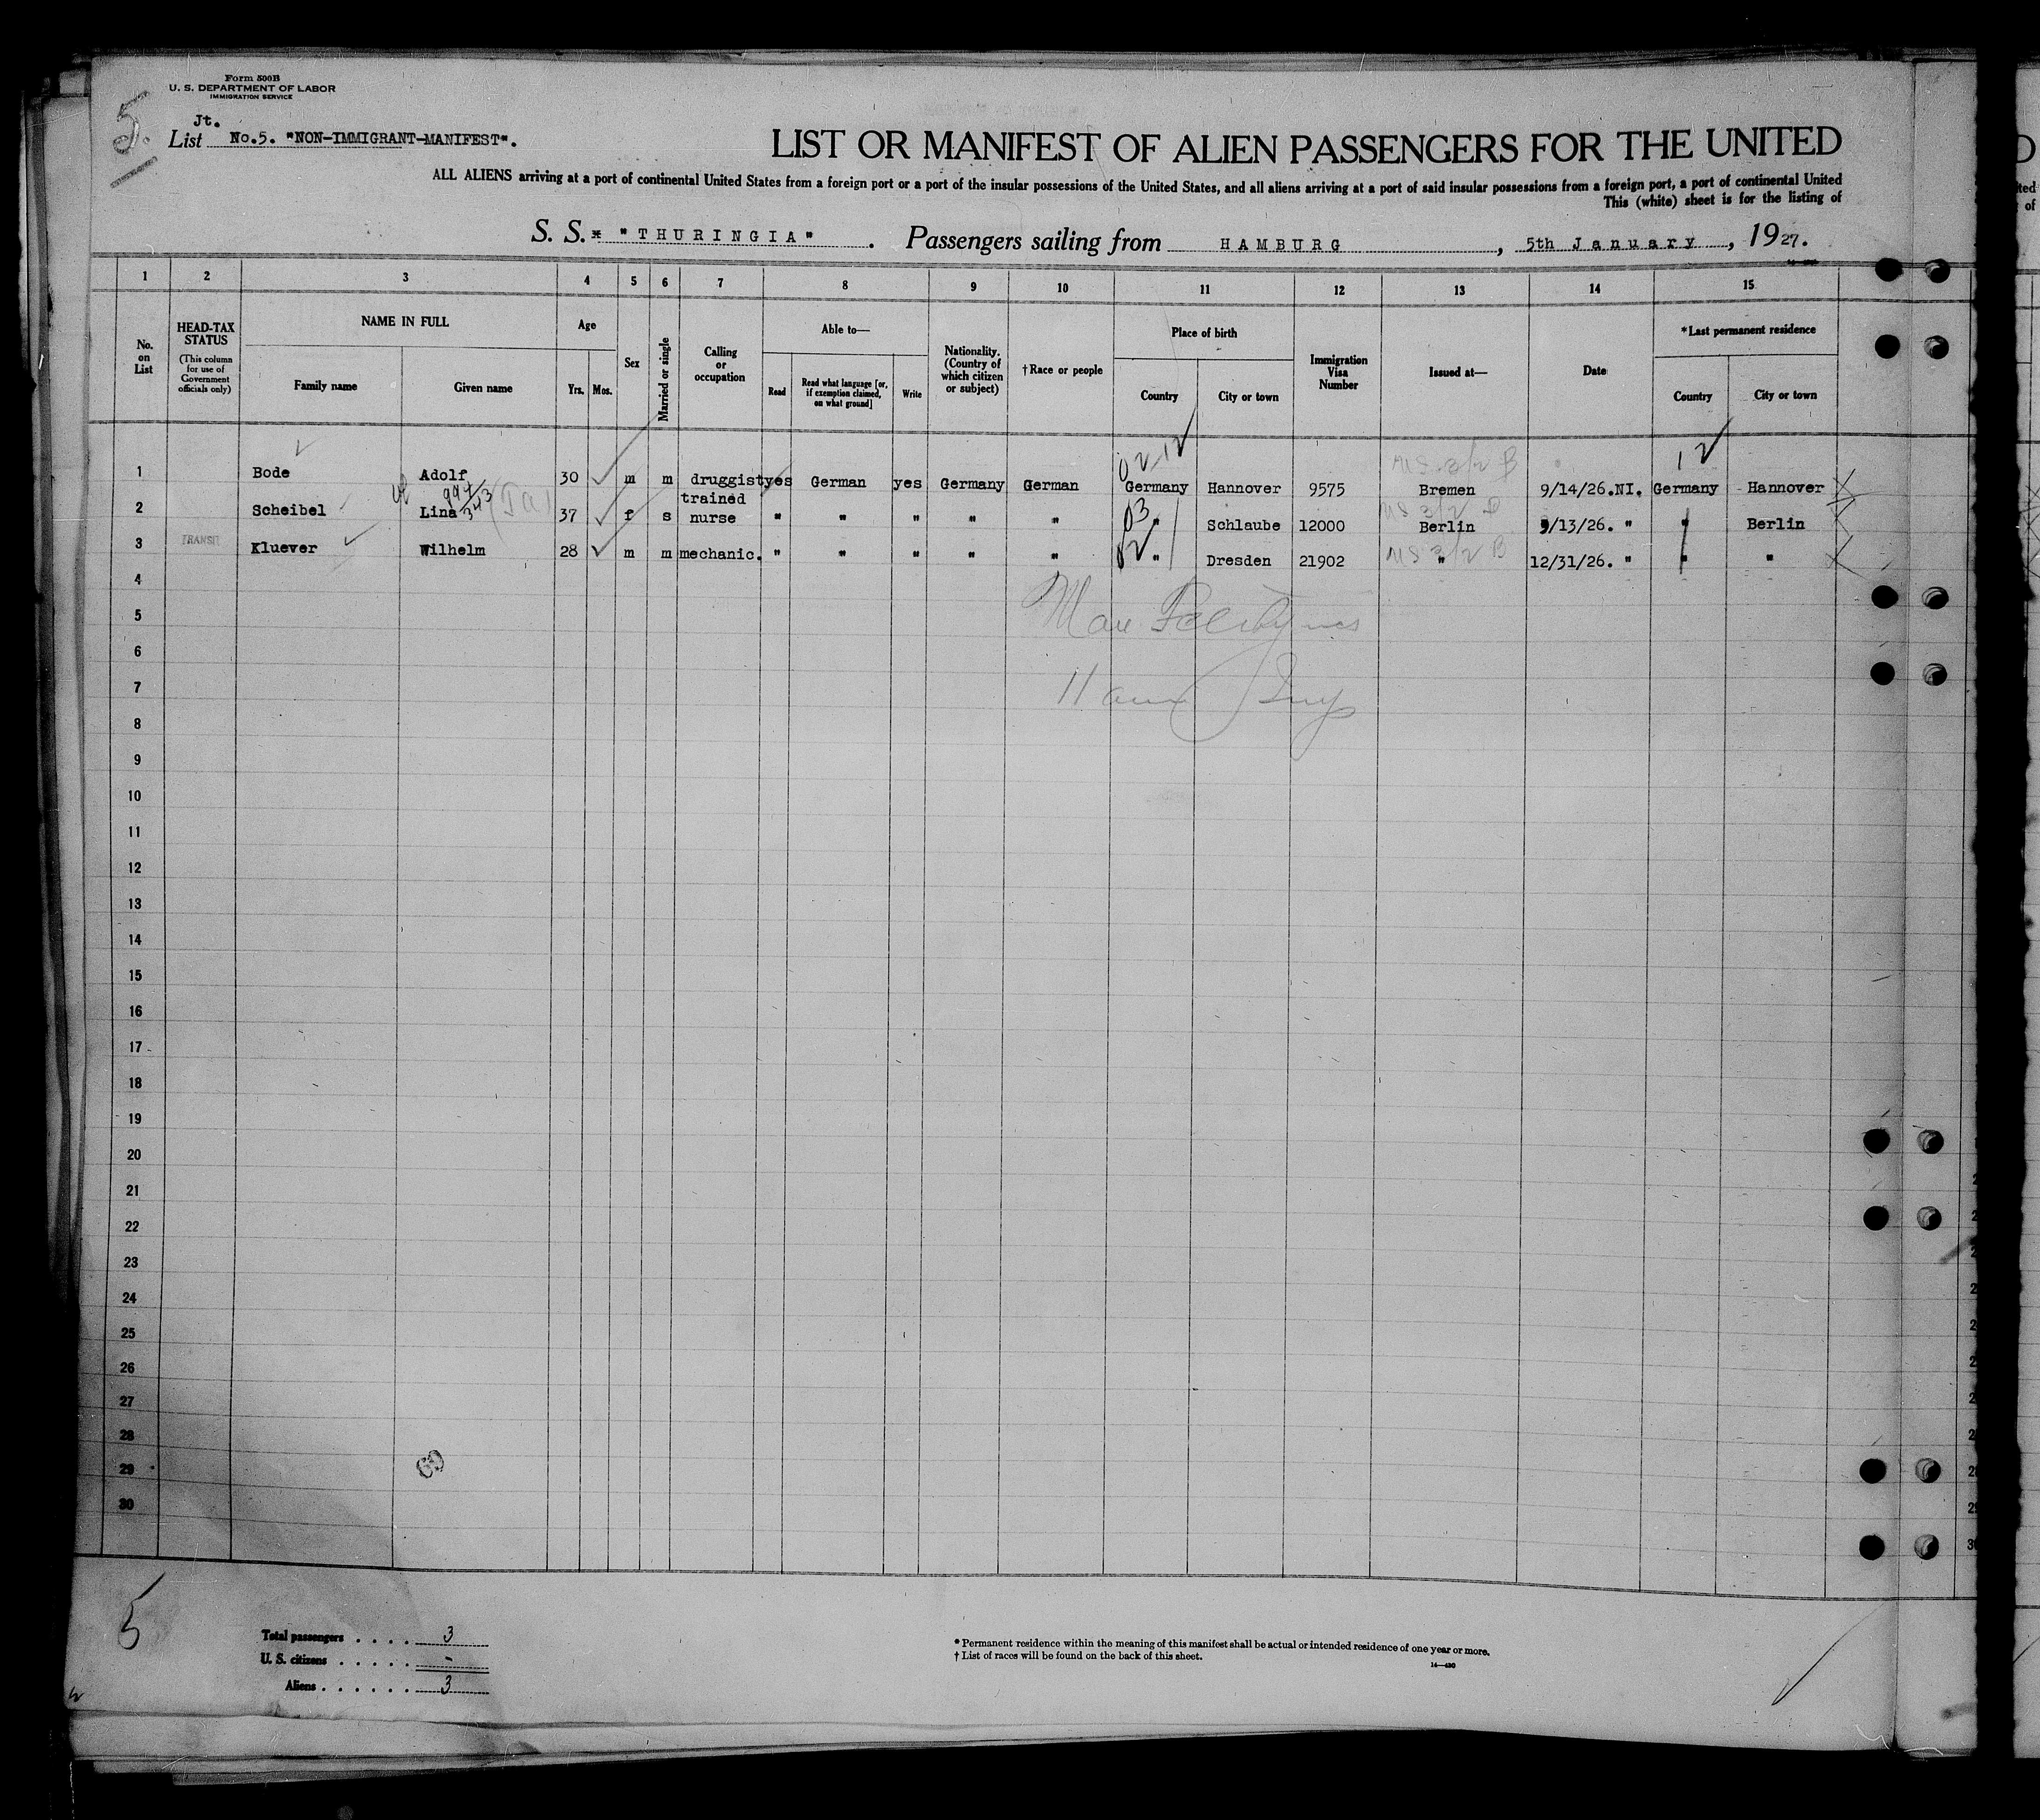 Form 500B
U. S. DEPARTMENT OF LABOR
IMMIGRATION SERVICE
5.
Jt.
List No.5. "NON-IMMIGRANT-MANIFEST".
LIST OR MANIFEST OF ALIEN PASSENGERS FOR THE UNITED
ALL ALIENS arriving at a port of continental United States from a foreign port or a port of the insular possessions of the United States, and all aliens arriving at a port of said insular possessions from a foreign port, a port of continental United
This (white) sheet is for the listing of
S. S. "THURINGIA". Passengers sailing from HAMBURG, 5th January, 1927.
1 2 3 4 5 6 7 8 9 10 11 12 13 14 15
No. on List
HEAD-TAX STATUS
(This column for use of Government officials only)
NAME IN FULL
Family name Given name
Age
Yrs. Mos.
Sex
Married or single
Calling or occupation
Able to—
Read
Read what language [or, if exemption claimed, on what ground]
Write
Nationality. (Country of which citizen or subject)
†Race or people
Place of birth
Country City or town
Immigration Visa Number
Issued at—
Date
*Last permanent residence
Country City or town
1 Bode Adolf 30 m m druggist yes German yes Germany German Germany Hannover 9575 Bremen 9/14/26.NI. Germany Hannover
2 Scheibel Lina 37 f s trained nurse " " " " " " Schlaube 12000 Berlin 9/13/26. " " Berlin
3 TRANSIT Kluever Wilhelm 28 m m mechanic. " " " " " " Dresden 21902 " 12/31/26. " " "
4
5
6
7
8
9
10
11
12
13
14
15
16
17
18
19
20
21
22
23
24
25
26
27
28
29
30
5
Total passengers . . . . 3
U. S. citizens . . . . . -
Aliens . . . . . . 3
* Permanent residence within the meaning of this manifest shall be actual or intended residence of one year or more.
† List of races will be found on the back of this sheet.
14—430